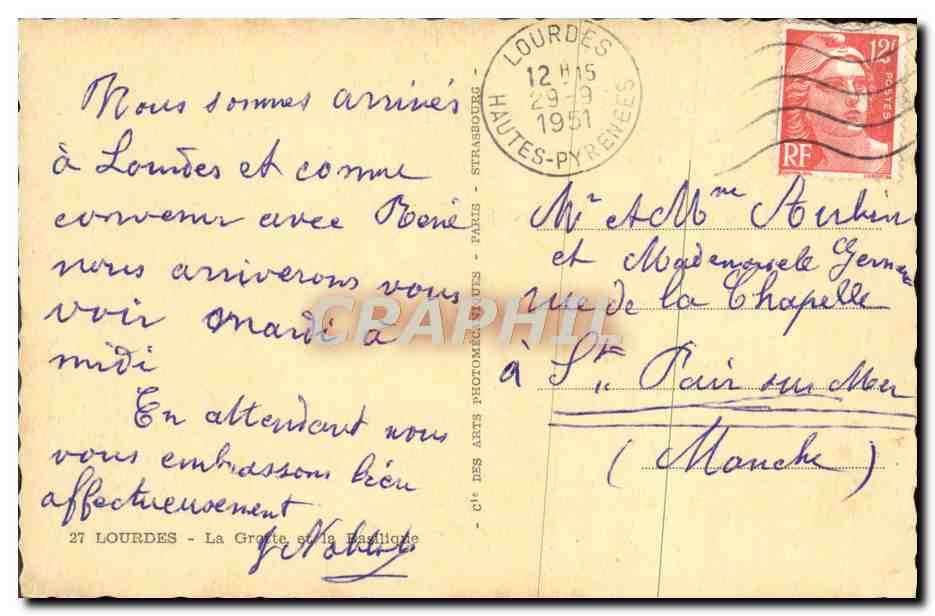 Nous sommes arrivés
à Lourdes et comme
convenu avec René
nous arriverons vous
voir mardi à
midi
En attendant nous
vous embrassons bien
affectueusement
27 LOURDES - La Grotte et la Basilique
- Cie DES ARTS PHOTOMÉCANIQUES - PARIS - STRASBOURG -
LOURDES
12 H 15
29-9
1951
HAUTES-PYRENEES
12F
POSTES
RF
Mr et Mme Aubin
et Mademoiselle
rue de la Chapelle
à St Pair sur Mer
(Manche)
CPAPHIL